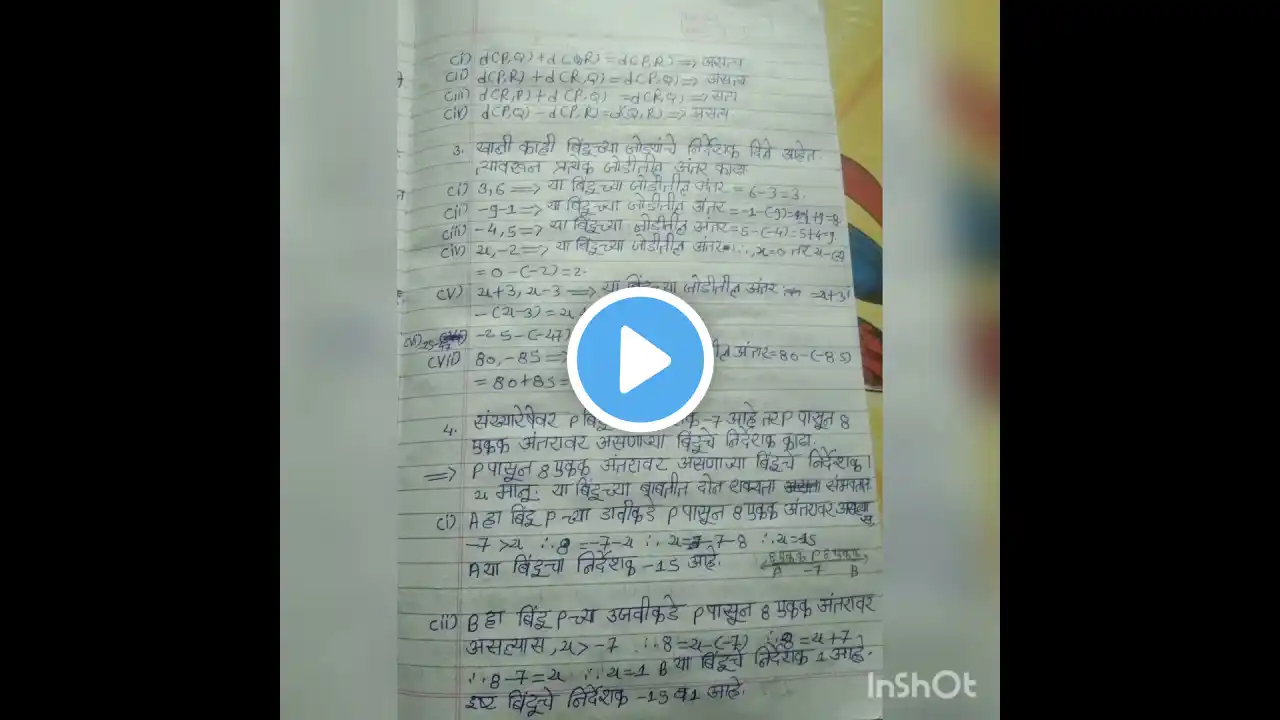 (i) d(P,Q)+d(Q,R)=d(P,R) => असत्य
(ii) d(P,R)+d(R,Q)=d(P,Q) => असत्य
(iii) d(R,P)+d(P,Q) =d(R,Q) => सत्य
(iv) d(P,Q)-d(P,R)=d(Q,R) => असत्य
3. खाली काही बिंदूच्या जोड्यांचे निर्देशक दिले आहेत.
त्यावरून प्रत्येक जोडीतील अंतर काढा
(i) 3,6 => या बिंदूच्या जोडीतील अंतर = 6-3=3.
(ii) -9-1 => या बिंदूच्या जोडीतील अंतर =-1-(-9)= +9=8
(iii) -4,5 => या बिंदूच्या जोडीतील अंतर=5-(-4)=5+4=9
(iv) x,-2 => या बिंदूच्या जोडीतील अंतर ∴,x=0 तर x-(-2)
=0-(-2)=2.
(v) x+3,x-3 => या बिंदूच्या जोडीतील अंतर =x+3
-(x-3)=x
(vi) -25-47 -25-(-47)
(vii) 80,-85 => तील अंतर=80-(-85)
=80+85=
4. संख्यारेषेवर P बिंदू क-7 आहे तर P पासून 8
एकक अंतरावर असणाऱ्या बिंदूचे निर्देशक काढा.
=> P पासून 8 एकक अंतरावर असणाऱ्या बिंदूचे निर्देशक
x मानू. या बिंदूच्या बाबतीत दोन शक्यता संभवतात
(i) A हा बिंदू P च्या डावीकडे P पासून 8 एकक अंतरावर असल्यास
-7 >x ∴8 =-7-x ∴ x=-7-8 ∴x=-15
A या बिंदूचा निर्देशक -15 आहे.
8 एकक P 8 एकक
A -7 B
(ii) B हा बिंदू P च्या उजवीकडे P पासून 8 एकक अंतरावर
असल्यास, x>-7 ∴8=x-(-7) ∴8=x+7
∴8-7=x ∴x=1 B या बिंदूचे निर्देशक 1 आहे.
इष्ट बिंदूचे निर्देशक -15 व 1 आहे.
InShOt